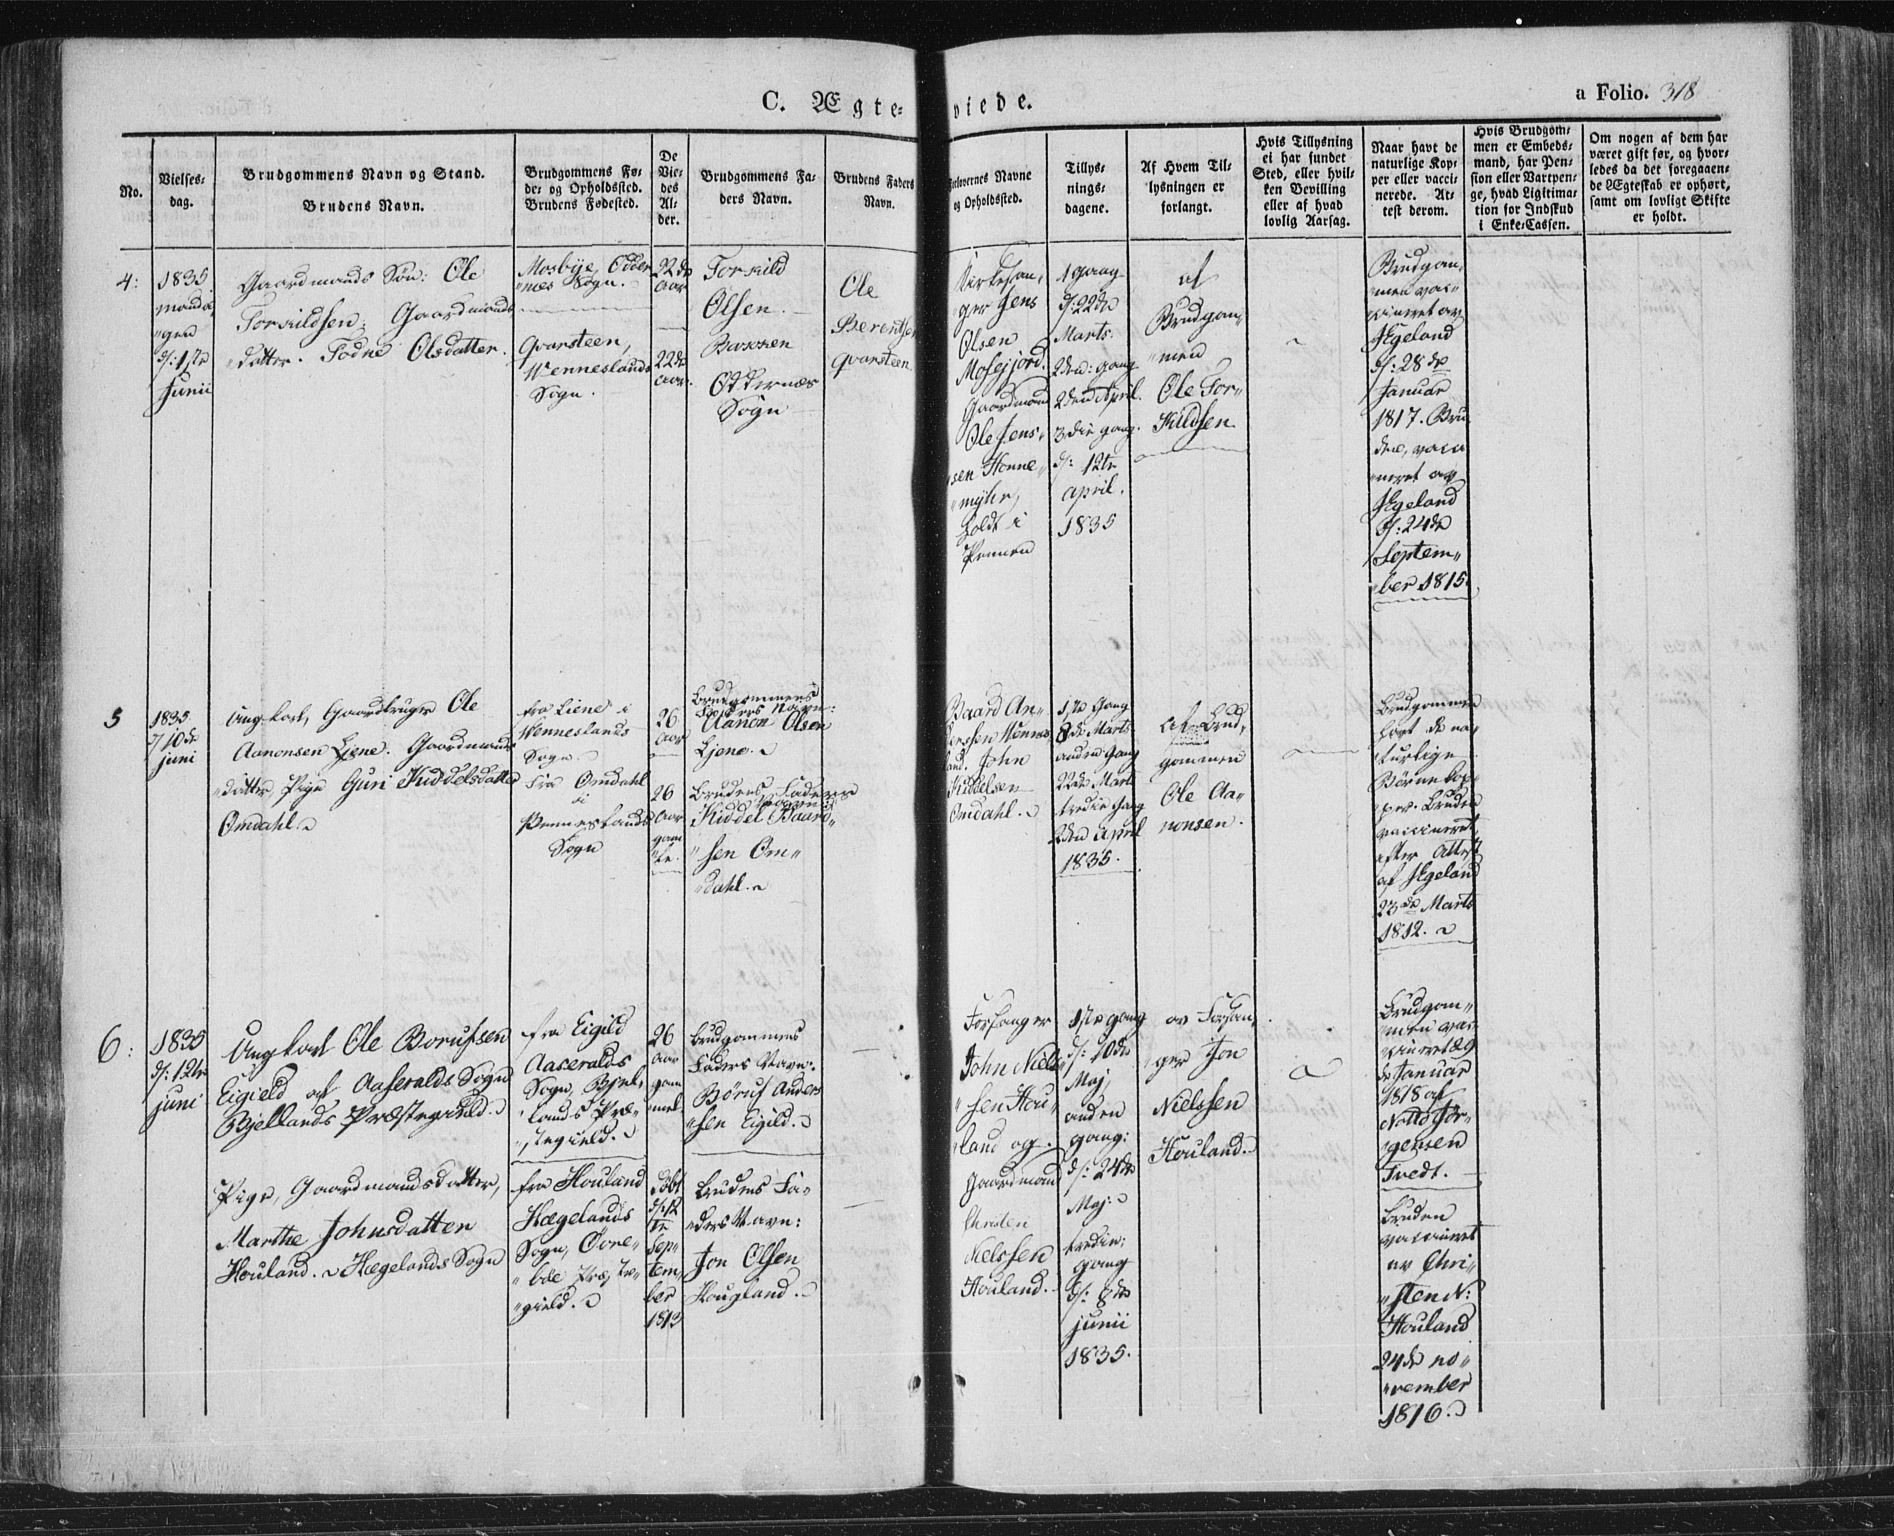 C. Ægte-
viede.
a Folio. 318
No.
Vielses-
dag.
Brudgommens Navn og Stand.
Brudens Navn.
Brudgommens Fø-
de- og Opholdssted.
Brudens Fødested.
De
Vie-
des
Al-
der.
Brudgommens Fa-
ders Navn.
Brudens Faders
Navn.
Forlovernes Navne
og Opholdssted.
Tillys-
nings-
dagene.
Af Hvem Til-
lysningen er
forlangt.
Hvis Tillysning
ei har fundet
Sted, eller hvil-
ken Bevilling
eller af hvad
lovlig Aarsag.
Naar havt de
naturlige Kop-
per eller vacci-
nerede. At-
test derom.
Hvis Brudgom-
men er Embeds-
mand, har Pen-
sion eller Vartpen-
ge, hvad Ligitima-
tion for Indskud
i Enke-Cassen.
Om nogen af dem har
været gift før, og hvor-
ledes da det foregaaen-
de Ægteskab er ophørt,
samt om lovligt Skifte
er holdt.
4:
1835
manda
"gen
d: 1te
Junii
Gaardmands Søn: Ole
Torkildsen. Gaardmands
"datter. Todne Olsdatter.
Mosbye, Odder
"nes Sogn.
Qvarsteen,
Wenneslands
Sogn.
22de
aar
22de
aar.
Torkild
Olsen.
Bakken
Oddernæs
Sogn
Ole
Berentsen
Qvarsteen
Kirkesan,
"ger Jens
Olsen
Mosejord.
Gaardmand
Ole Jens,
"sen Honne-
"myhr,
holdt i
Prunen
1 gang
d: 22de
Marts.
2den: gang
2den April.
3die gang.
d: 12te
April.
1835
af
Brudgom-
"men
Ole Tor-
Kildsen
Brudgom,
men vac-
cineret av
Egeland
d: 28de
Januar
1817. Bru
den, vacci
"neret av
Egeland
d: 24de
Septem"
"ber 1815.
5
1835
d 10de
juni
Ungkarl, Gaardbruger Ole
Aanonsen Liene. Gaardmands
"datter Pige Guri Kiddelsdatter
Omdahl.
fra Liene i
Wenneslands
Sogn.
Fra Omdahl
i
Wenneslands
Sogn
26
aar
26
aar
gam
"le.
Brudgommens
Faders Navn:
Aanon Olsen
Liene.
Brudens Faders
Navn:
Kiddel Baard"
"sen Om"
"dahl.
Baard An-
dersen Wennes,
land. John
Kiddelsen
Omdahl.
1ste Gang
8de Marts
anden Gang
22de Marts
tredie Gang
2den April
1835.
af Brud,
gommen
Ole Aa-
nonsen.
Brudgommen
havt de na-
turlige
Børnekop-
per. Bruden
vaccineret,
efter Attest
af Egeland
23de Marts
1812.
6:
1835
d: 12te
juni
Ungkarl Ole Borufsen
Eigield af Aaseralds Sogn
Bjellands Præstegield.
Pige, Gaardmandsdatter,
Marthe Johnsdatter
Houland. Hægelands Sogn
fra Eigild
Aaseralds
Sogn, Bjel,
"lands Præ-
"stegield.
fra Houland
Hægelands
Sogn, Øvre-
"bøe Præste-
"gield.
26
aar
gam
mel.
Døbt
d: 12
te
Sep-
tem,
ber
1813
Brudgommens
Faders Navn:
Børuf Anders
"sen Eigild.
Brudens Fa-
"ders Navn:
Jon Olsen
Hougland.
Forsanger
John Niels
"sen Hou-
"land og
Gaardmand
Christen
Nielssen
Houland.
1ste gang
d: 10de
Maj,
anden
gang:
d: 24de
Maj:
tredie:
gang
d: 8de
junii
1835.
av Forsan,
ger Jon
Nielssen
Houland.
Brudgom-
men vac-
cineret 29
de Januar
1818 af
Notto Jør-
gensen
Tvedt.
Bruden
vaccineret
av Chri-
"sten N:
Houland
24de no"
"vember
1816.